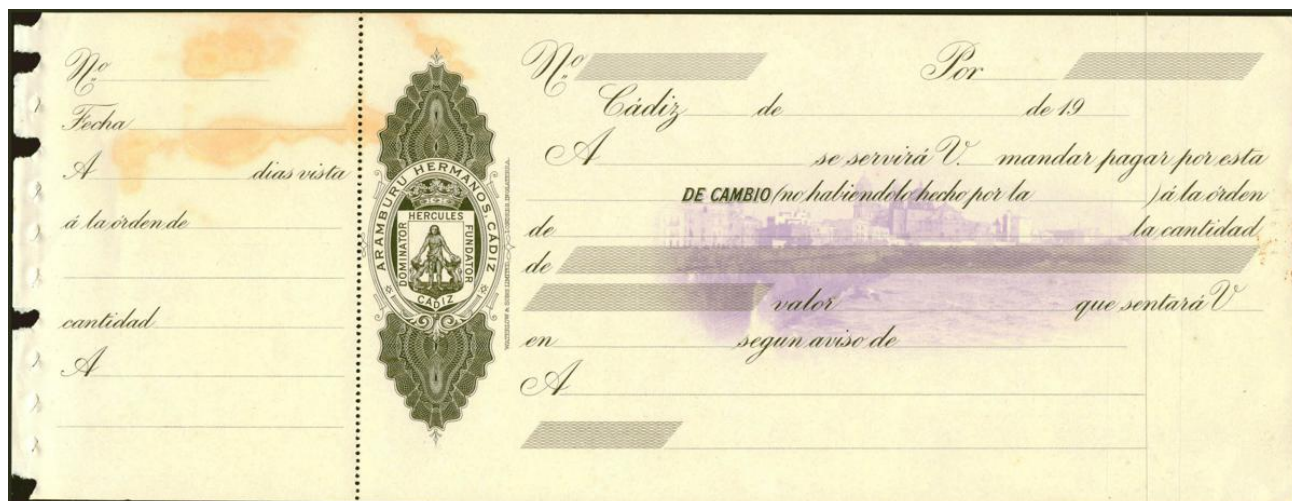 Nº
Fecha
A dias vista
á la órden de
cantidad
A
ARAMBURU HERMANOS, CÁDIZ
HERCULES
DOMINATOR
FUNDATOR
CADIZ
WATERLOW & SONS LIMITED, LONDRES, INGLATERRA.
Nº Por
Cádiz de de 19
A se servirá V. mandar pagar por esta
DE CAMBIO (no habiendolo hecho por la ) á la órden
de la cantidad
de
valor que sentará V
en segun aviso de
A